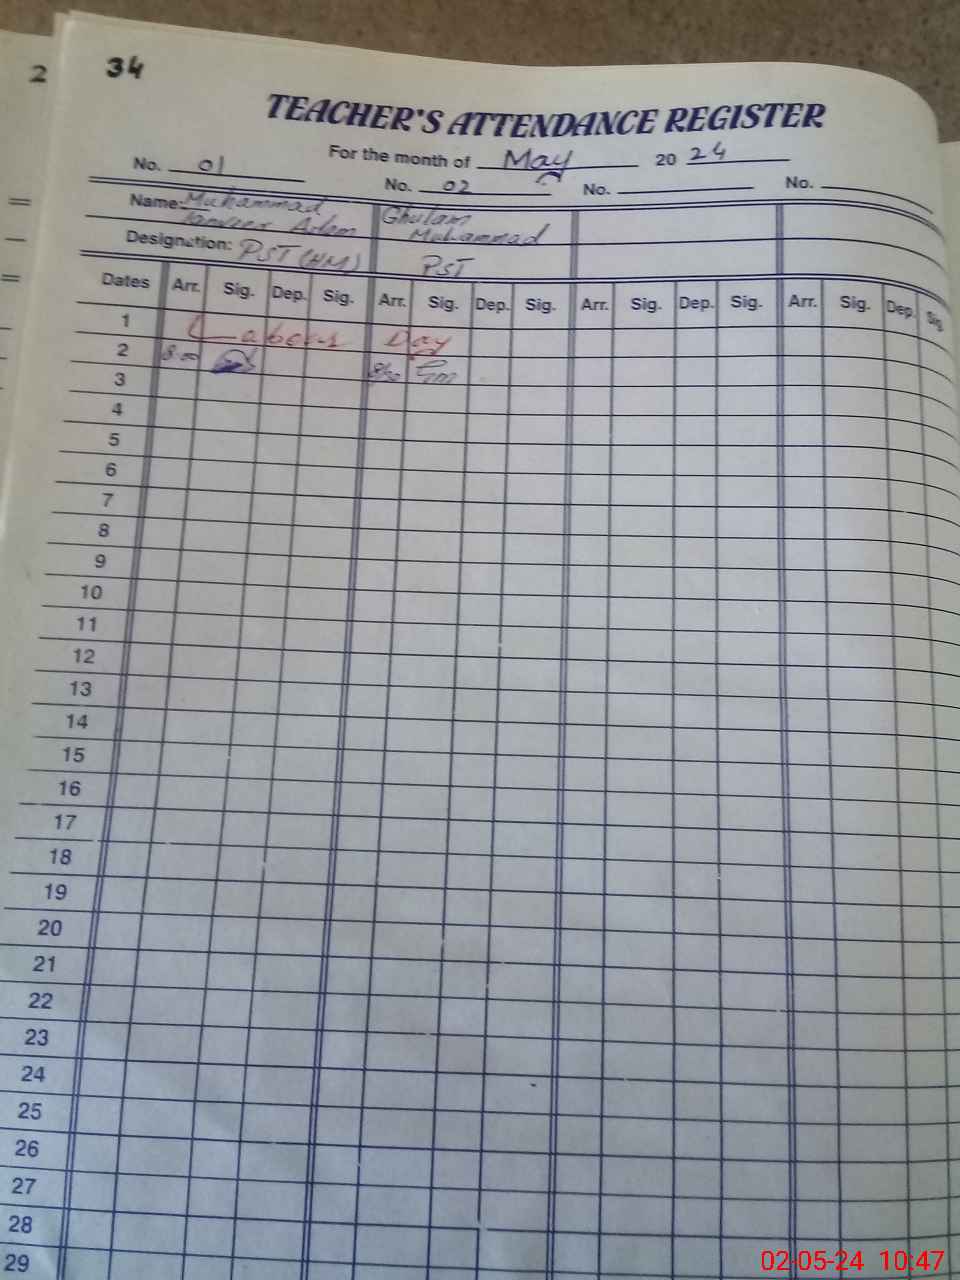 2
34
TEACHER'S ATTENDANCE REGISTER
For the month of May 2024
No. 01 No. 02 No. No.
Name: Muhammad Ghulam
Tanveer Aslam Muhammad
Designation: PST (HM) PST
Dates Arr. Sig. Dep. Sig. Arr. Sig. Dep. Sig. Arr. Sig. Dep. Sig. Arr. Sig. Dep. Sig.
1 Labours Day
2 8:00 8:00 Gm
3
4
5
6
7
8
9
10
11
12
13
14
15
16
17
18
19
20
21
22
23
24
25
26
27
28
29
02-05-24 10:47